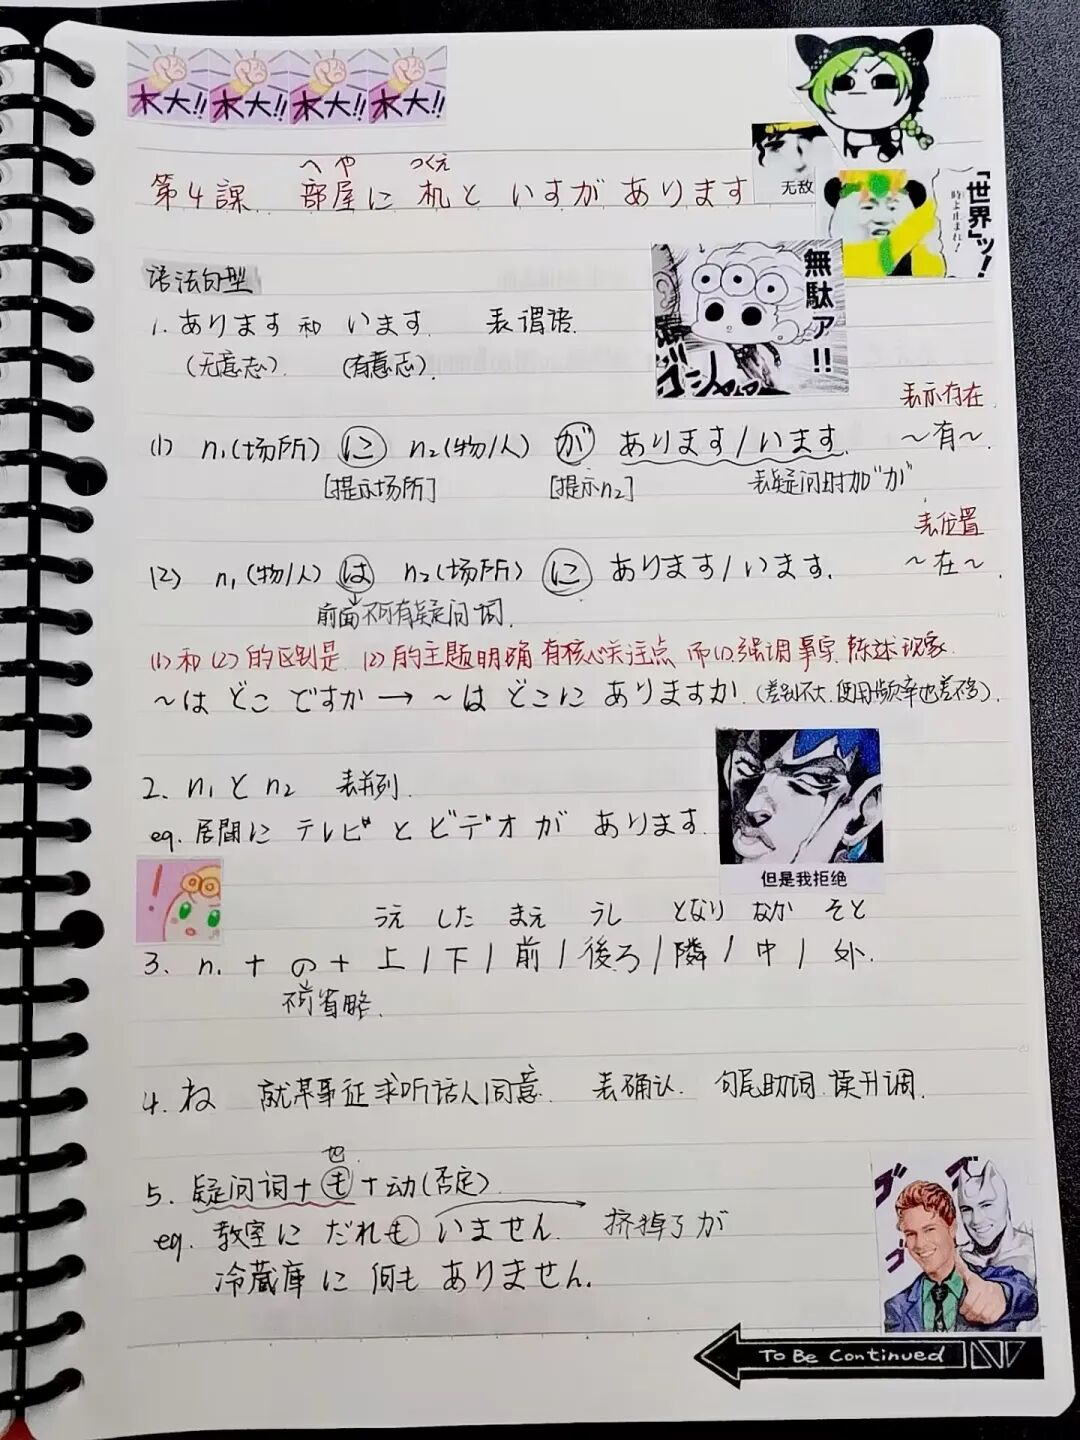 木大!! 木大!! 木大!! 木大!!
へや つくえ
第4課 部屋に机といすがあります
无敌
「世界」ッ!
時よ止まれ!
無駄ァ!!
语法句型
1. あります 和 います. 表谓语.
(无意志). (有意志).
表示存在.
(1) n₁(场所) に n₂(物/人) が あります/います. ~有~.
[提示场所] [提示n₂] 表疑问时加"が"
表位置
(2) n₁(物/人) は n₂(场所) に あります/います. ~在~.
前面不可有疑问词.
(1)和(2)的区别是 (2)的主题明确 有核心关注点 而(1)强调事实 陈述现象.
~は どこ ですか → ~は どこに ありますか. (差别不大.使用频率也差不多).
2. n₁ と n₂ 表并列.
eg. 居間に テレビ と ビデオ が あります.
但是我拒绝
!
うえ した まえ うし となり なか そと
3. n₁ + の + 上 / 下 / 前 / 後ろ / 隣 / 中 / 外.
不可省略.
4. ね 就某事征求听话人同意. 表确认. 句尾助词.读升调.
5. 疑问词 + も + 动(否定).
eq. 教室に だれも いません. 挤掉了が
冷蔵庫に 何も ありません.
ゴ ゴ ゴ ゴ
To Be Continued